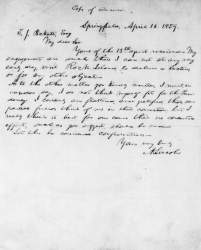 Springfield, April 16. 1859.
T. J. Pickett, Esq
My dear Sir
Yours of the 13th is just received. My
engagements are such that I can not at any very
early day visit Rock Island to deliver a lecture
or for any other object.
As to the other matter you kindly mention, I must in
candor say I do not think myself fit for the Presi-
dency. I certainly am flattered and gratified that some
partial friends think of me in that connection but I
really think it best for our cause that no concerted
effort, such as you suggest should be made.
Let this be considered confidential.
Yours very truly
A Lincoln